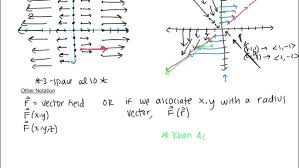 * 3-space also *
Other Notation
F = vector field OR if we associate x,y with a radius
F(x,y) vector, F(r)
F(x,y,z)
* Khan Ac